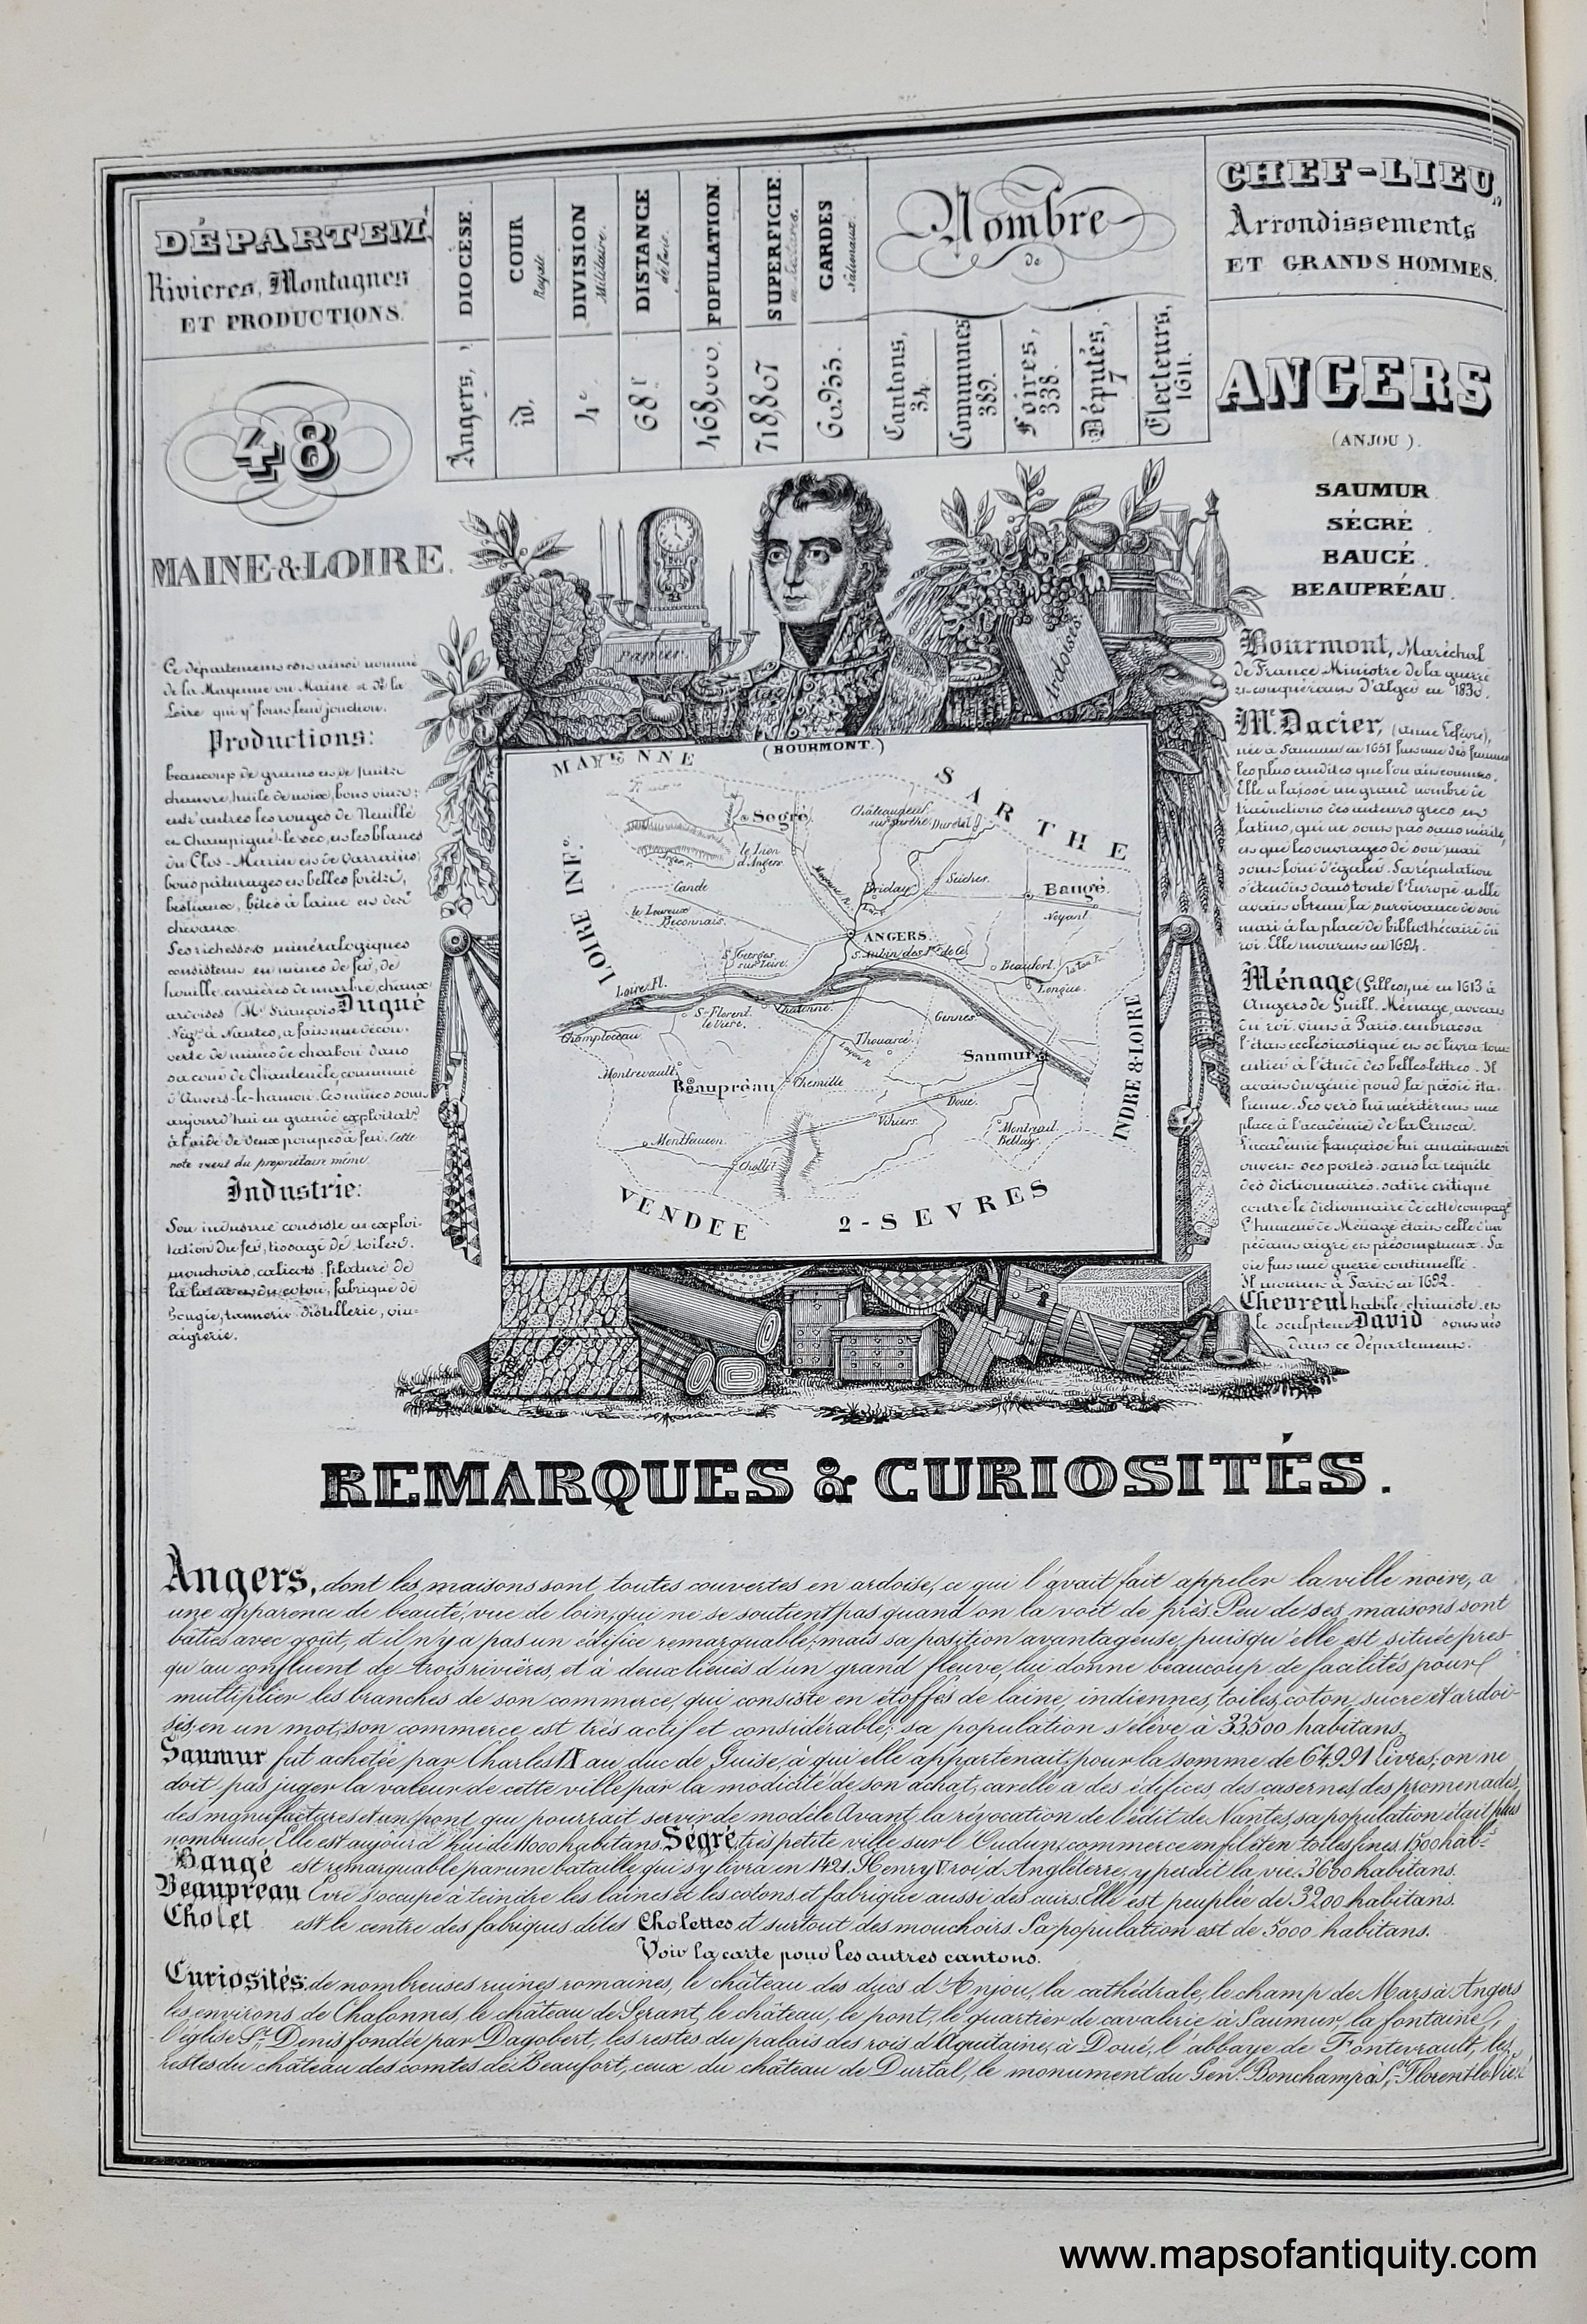 DÉPARTEM.
Rivieres, Montagnes
ET PRODUCTIONS.
DIOCÈSE.
Angers,
COUR Royale
id.
DIVISION Militaire.
4e.
DISTANCE de Paris.
68 l
POPULATION.
468,000.
SUPERFICIE
718,807
GARDES Nationaux.
60,955.
Nombre
de
Cantons,
34.
Communes
389.
Foires,
338.
Députés,
7
Électeurs,
1611.
CHEF-LIEU,
Arrondissements
ET GRANDS HOMMES.
48
MAINE & LOIRE.
Ce département est ainsi nommé
de la Mayenne ou Maine et de la
Loire qui y font leur jonction.
Productions:
beaucoup de grains et de fruits
chanvre, huile de noix, bons vins:
entr'autres les rouges de Neuillé
et Champigné-le-sec, et les blancs
du Clos-Morin et de Varrains;
bons pâturages et belles forêts,
bestiaux, bêtes à laine et des
chevaux.
Ses richesses minéralogiques
consistent en mines de fer, de
houille, carrières de marbre, chaux
ardoises (Mr. François Dugué
Négt. à Nantes, a fait une décou-
verte de mines de charbon dans
sa cour de Chauteuilé, commune
d'Anvers-le-hamon. Ces mines sont
aujourd'hui en grande exploitatn.
à l'aide de deux pompes à feu. Cette
note vient du propriétaire même.
Industrie:
Son industrie consiste en exploi-
tation du fer, tissage de toiles.
mouchoirs, calicots, filature de
la laine et du coton, fabrique de
bougie, tannerie, distillerie, vin-
aigrerie.
Papier.
Ardoises.
(BOURMONT.)
MAYENNE
SARTHE
LOIRE INF.e
INDRE & LOIRE
VENDEE
2-SEVRES
Segré
Châteauneuf
sur Sarthe.
Durtal
le Lion
d'Angers
Mayenne R.
Briolay
Seiches.
Baugé.
Noyant.
Cande
le Louroux
Beconnais.
ANGERS.
St. Georges
sur Loire.
Beaufort.
Longue.
Loire Fl.
Chalonne.
St. Florent
le Vieux.
Champtoceau
Gennes.
Thouarcé
Layon R.
Saumur
Montrevault
Beaupréau
Chemille
Doue.
Vihiers.
Montfaucon.
Montreuil
Bellay.
Chollet
ANGERS
(ANJOU).
SAUMUR
SÉGRÉ.
BAUGÉ.
BEAUPRÉAU.
Bourmont, Maréchal
de France Ministre de la guerre
et conquérant d'Alger en 1830.
Me. Dacier, (Anne Lefèvre),
née à Saumur en 1651 fut une des femmes
les plus erudites que l'on ait connues.
Elle a laissé un grand nombre de
traductions des auteurs grecs et
latins, qui ne sont pas sans mérite,
et que les ouvrages de son mari
sont loin d'égaler. Sa réputation
s'étendit dans toute l'Europe et elle
avait obtenu la survivance de son
mari à la place de bibliothécaire du
roi. Elle mourut en 1694.
Ménage (Gilles), né en 1613 à
Angers de Guill. Ménage, avocat
du roi, vint à Paris, embrassa
l'état ecclésiastique et se livra tout
entier à l'étude des belles-lettres. Il
avait du génie pour la poésie ita-
lienne. Ses vers lui méritèrent une
place à l'académie de la Crusca.
l'académie française lui aurait aussi
ouvert ses portes sans la requête
des dictionnaires, satire critique
contre le dictionnaire de cette compagie.
L'humeur de Ménage était celle d'un
pédant aigre et présomptueux. Sa
vie fut une guerre continuelle.
Il mourut à Paris en 1692.
Chevreul habile chimiste et
le sculpteur David sont nés
dans ce Département.
REMARQUES & CURIOSITÉS.
Angers, dont les maisons sont toutes couvertes en ardoise, ce qui l'avait fait appeler la ville noire, a
une apparence de beauté, vue de loin, qui ne se soutient pas quand on la voit de près. Peu de ses maisons sont
bâties avec goût, et il n'y a pas un édifice remarquable; mais sa position avantageuse, puisqu'elle est située pres-
qu'au confluent de trois rivières, et à deux lieues d'un grand fleuve, lui donne beaucoup de facilités pour
multiplier les branches de son commerce, qui consiste en étoffes de laine, indiennes, toiles, coton, sucre et ardoi-
ses, en un mot, son commerce est très actif et considérable; sa population s'élève à 33500 habitans.
Saumur fut achetée par Charles IX au duc de Guise, à qui elle appartenait, pour la somme de 64991 Livres; on ne
doit pas juger la valeur de cette ville par la modicité de son achat, car elle a des édifices, des casernes, des promenades,
des manufactures et un pont qui pourrait servir de modèle. Avant la révocation de l'édit de Nantes, sa population était plus
nombreuse. Elle est aujourd'hui de 11000 habitans. Ségré, très petite ville sur l'Oudun, commerce en fil et en toiles fines. 1500 hab.s
Baugé est remarquable par une bataille qui s'y livra en 1421. Henry V roi d'Angleterre, y perdit la vie. 3600 habitans.
Beaupreau Evre s'occupe à teindre les laines et les cotons, et fabrique aussi des cuirs. Elle est peuplée de 3200 habitans.
Cholet est le centre des fabriques dites Cholettes et surtout des mouchoirs. Sa population est de 5000 habitans.
Voir la carte pour les autres cantons.
Curiosités: de nombreuses ruines romaines, le château des ducs d'Anjou, la cathédrale, le champ de Mars à Angers
les environs de Chalonnes, le château de Serant, le château, le pont, le quartier de cavalerie à Saumur, la fontaine,
l'église St. Denis fondée par Dagobert, les restes du palais des rois d'Aquitaine, à Doué, l'abbaye de Fontevrault, les
restes du château des comtes de Beaufort, ceux du château de Durtal, le monument du Gen.l Bonchamp à St. Florent-le-Vieil
www.mapsofantiquity.com